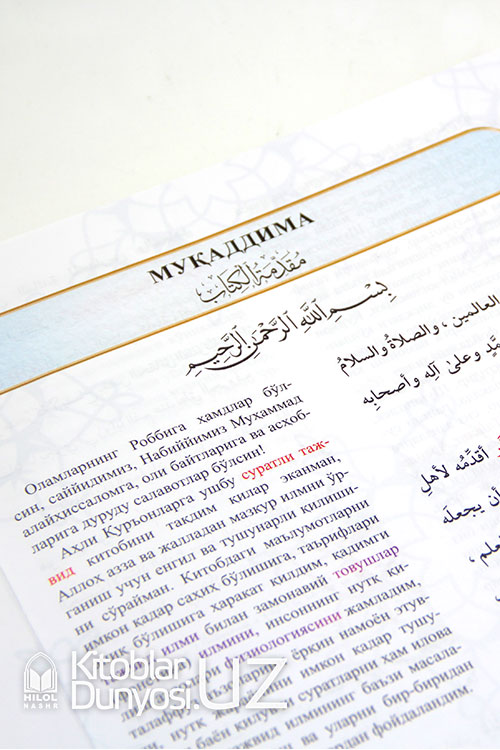 МУҚАДДИМА
مُقَدِّمَةُ الْكِتَابِ
بِسْمِ اللَّهِ الرَّحْمَنِ الرَّحِيمِ
Оламларнинг Роббига хамдлар бўл-
син, саййидимиз, Набийимиз Муҳаммад
алайҳиссаломга, оли байтларига ва асҳоб-
ларига дуруду салавотлар бўлсин!
Аҳли Қуръонларга ушбу суратли таж-
вид китобини тақдим қилар эканман,
Аллоҳ азза ва жалладан мазкур илмни ўр-
ганиш учун енгил ва тушунарли қилиши-
ни сўрайман. Китобдаги маълумотларни
имкон қадар саҳиҳ бўлишига, таърифлари
аниқ бўлишига ҳаракат қилдим, қадимги
илми билан замонавий товушлар
илмини, инсоннинг нутқ қи-
физиологиясини жамладим,
ёрқин намоён этув-
имкон қадар тушу-
суратларни ҳам илова
илмининг баъзи масала-
ва уларни бир-биридан
фойдаландим.
العالمين ، والصلاةُ والسلامُ
وعلىٰ آلِه وأصحابِه
أقدِّمُه لأهلِ
أن يجعلَه
HILOL
NASHR
Kitoblar
Dunyosi.UZ